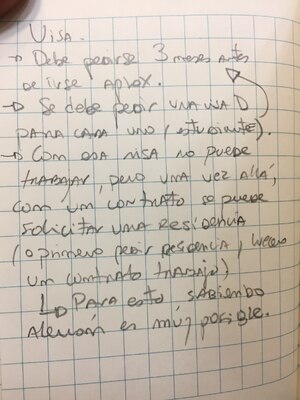 VISA.
→ Debe pedirse 3 meses antes
de irse aprox.
→ Se debe pedir UNA VISA D
PARA CADA UNO (estudiante).
→ Con esa visa no puede
trabajar, pero una vez allá,
con un contrato se puede
solicitar una Residencia
(o primero pedir residencia, luego
un contrato trabajo)
↳ Para esto sabiendo
Alemán es muy posible.